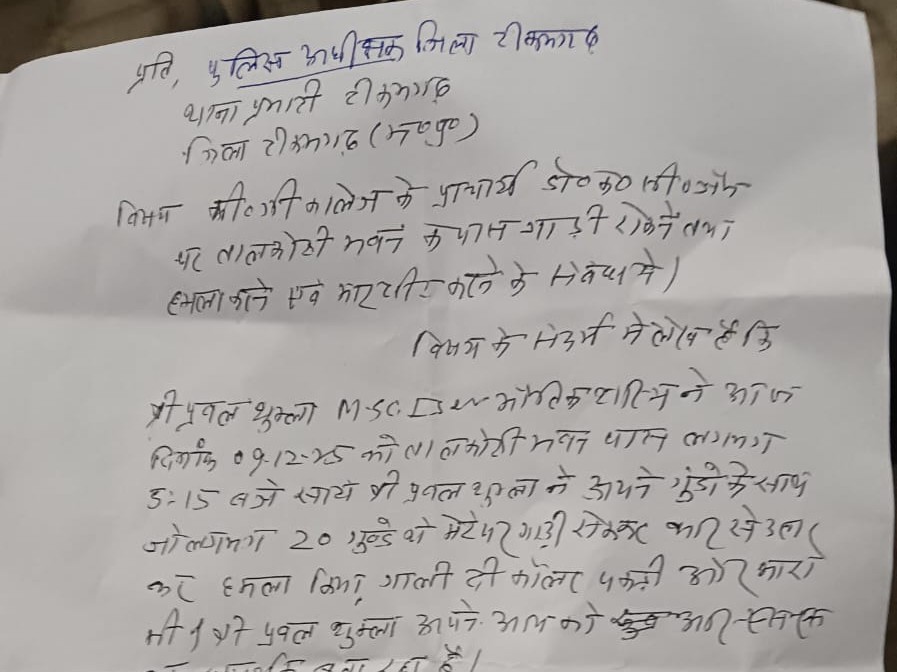 प्रति, पुलिस अधीक्षक जिला टीकमगढ़
थाना प्रभारी टीकमगढ़
जिला टीकमगढ़ (म०प्र०)
विषय पी०जी कालेज के प्राचार्य डॉ० के० सी० जैन
पर तालकोठी भवन के पास गाड़ी रोकने तथा
हमला करने एवं मारपीट करने के संबंध में।
विषय के संदर्भ में लेख है कि
श्री प्रवल शुक्ला M.SC. भौतिक शास्त्र ने आज
दिनांक 09-12-25 को तालकोठी भवन पास लगभग
5:15 बजे सायं श्री प्रवल शुक्ला ने अपने गुंडों के साथ
जो लगभग 20 गुण्डे थे मेरे पर गाड़ी रोककर कार से उतार
कर हमला किया, गाली दी कॉलर पकड़ी और मारा
भी। श्री प्रवल शुक्ला अपने आप को
बता रहा है।